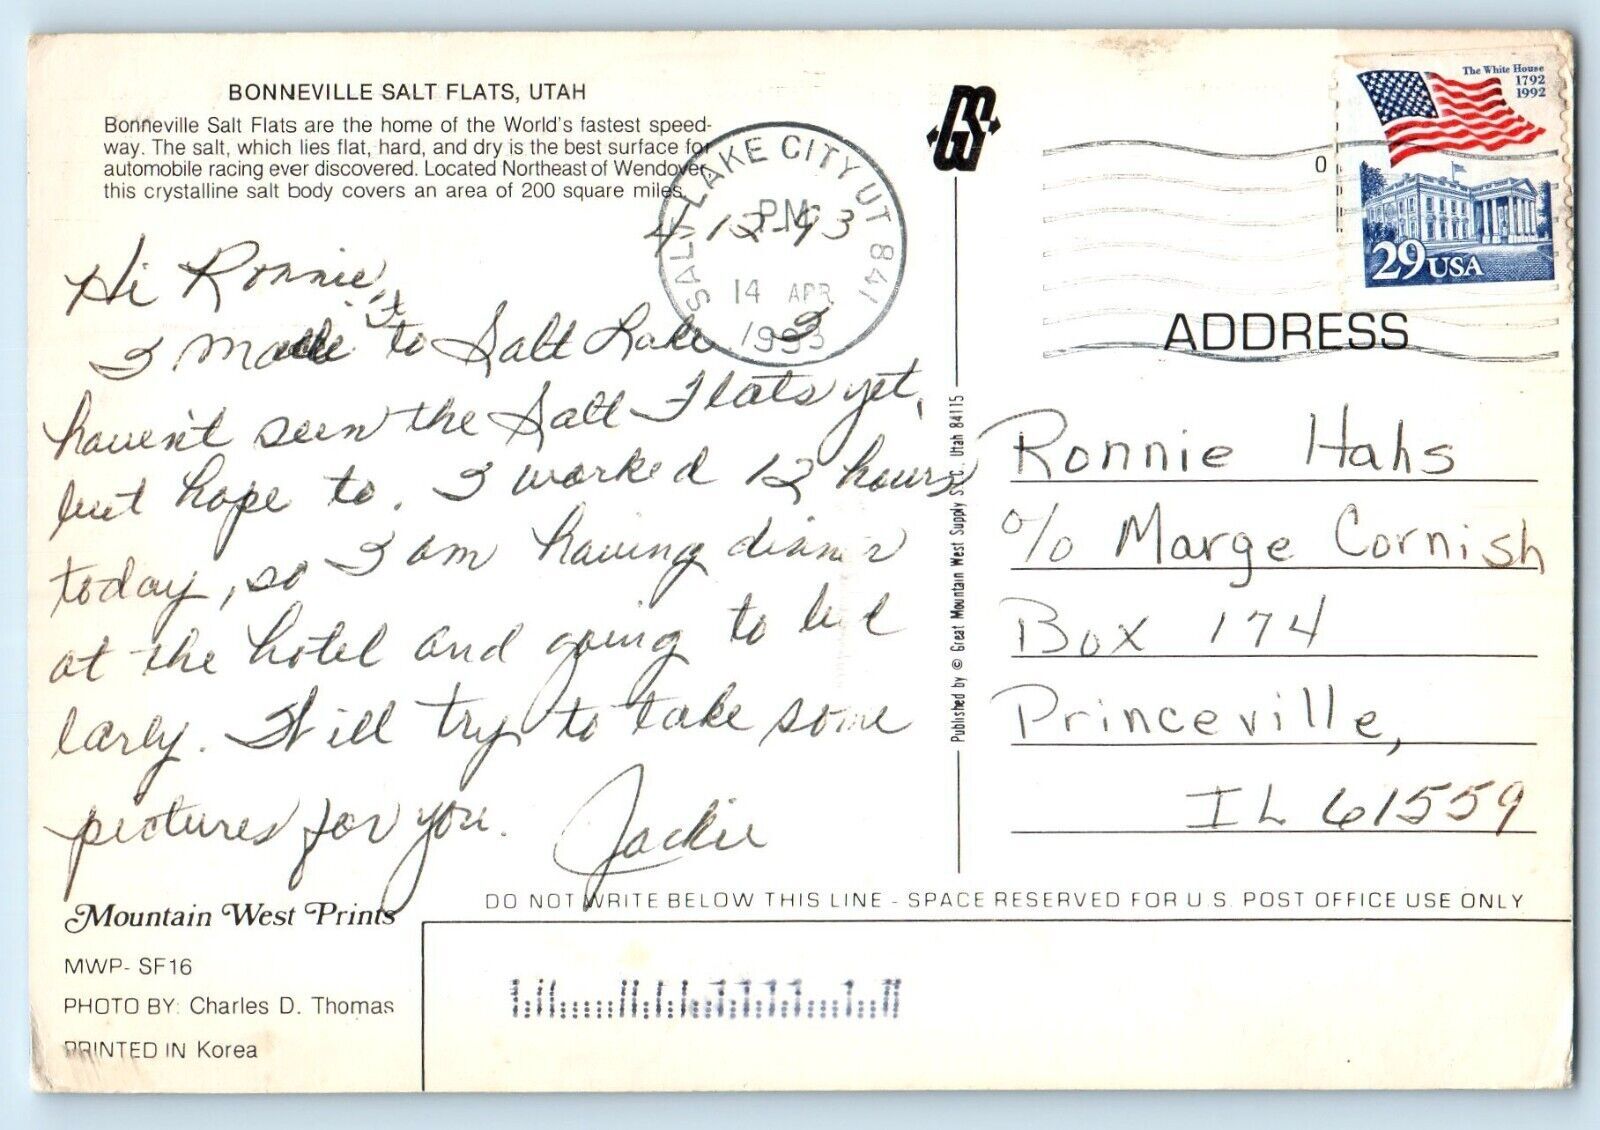 BONNEVILLE SALT FLATS, UTAH
Bonneville Salt Flats are the home of the World's fastest speed-
way. The salt, which lies flat, hard, and dry is the best surface for
automobile racing ever discovered. Located Northeast of Wendover
this crystalline salt body covers an area of 200 square miles.
4-12-93
Hi Ronnie,
I made it to Salt Lake. I
haven't seen the Salt Flats yet,
but hope to. I worked 12 hours
today, so I am having dinner
at the hotel and going to bed
early. Will try to take some
pictures for you. Jackie
Mountain West Prints
MWP- SF16
PHOTO BY: Charles D. Thomas
PRINTED IN Korea
SALT LAKE CITY UT 841
PM
14 APR
1993
GS
Published by © Great Mountain West Supply S.L.C., Utah 84115
The White House
1792
1992
29 USA
0
ADDRESS
Ronnie Hahs
% Marge Cornish
Box 174
Princeville,
IL 61559
DO NOT WRITE BELOW THIS LINE - SPACE RESERVED FOR U.S. POST OFFICE USE ONLY